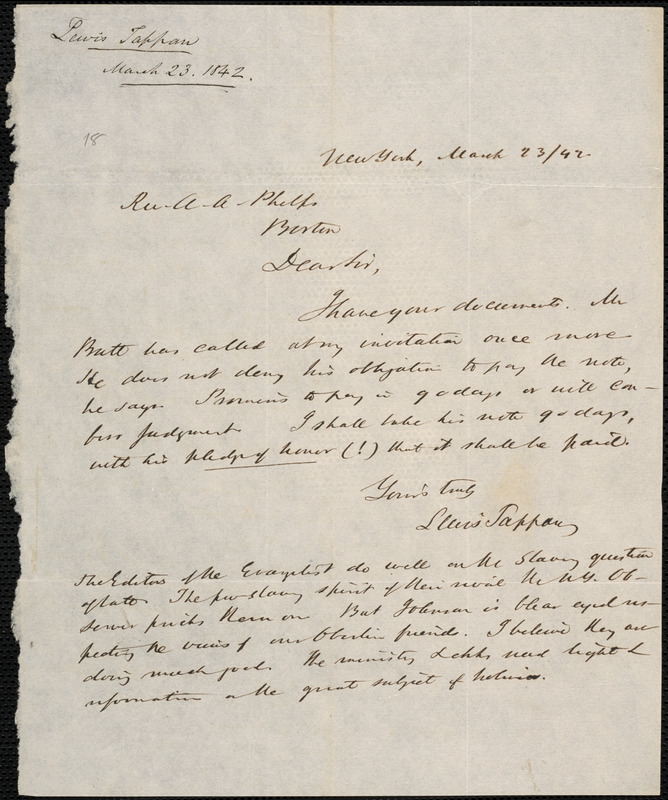 Lewis Tappan
March 23. 1842.
18
New York, March 23/42
Rev. A. A. Phelps
Boston
Dear Sir,
I have your documents. Mr
Butt has called at my invitation once more
He does not deny his obligation to pay the note,
he says. Promises to pay in 90 days or will con-
fess judgment. I shall take his note 90 days,
with his pledge of honor (!) that it shall be paid.
Yours truly
Lewis Tappan
The Editors of the Evangelist do well on the Slavery question
of late. The pro-slavery spirit of their rival the N.Y. Ob-
server pricks them on. But Johnson is blear eyed res-
pecting the views of our Oberlin friends. I believe they are
doing much good. The ministry & chhs need light &
information on the great subject of holiness.